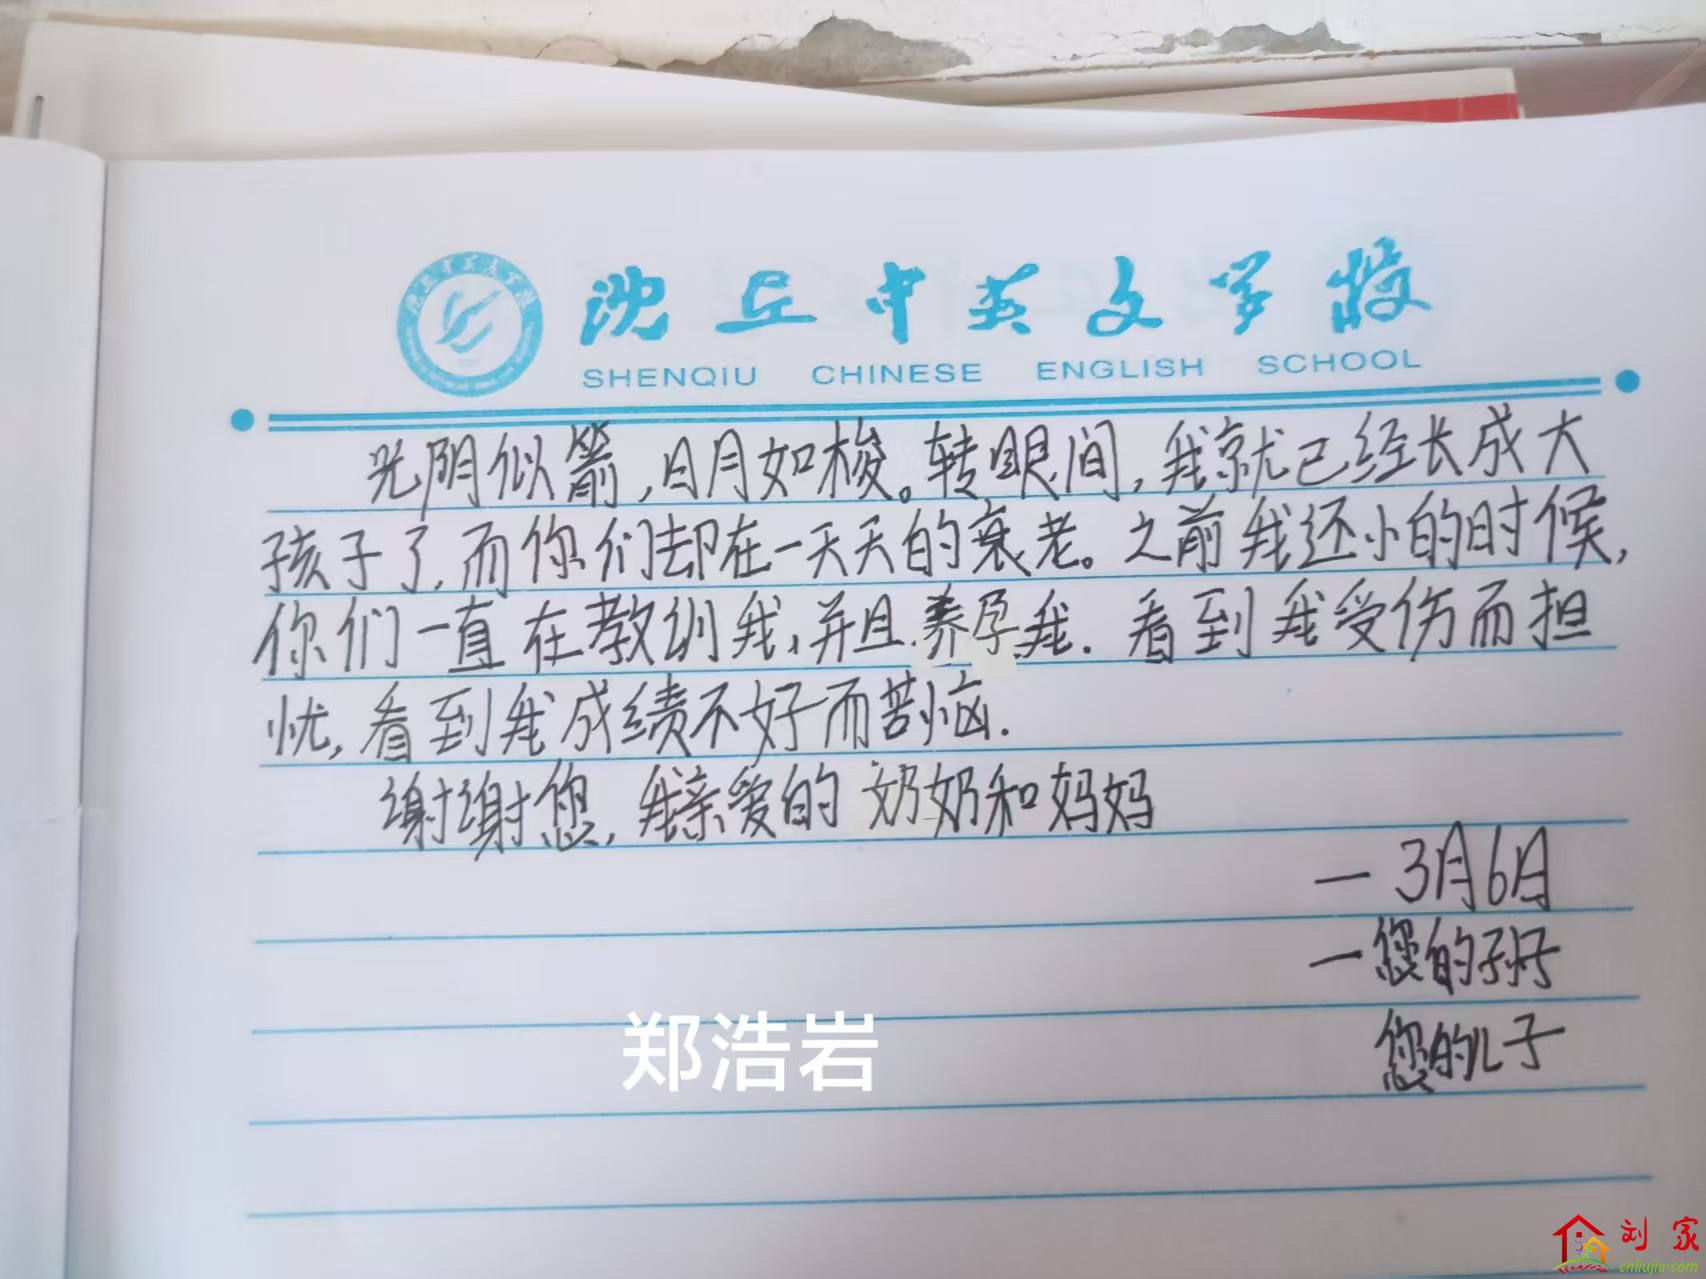 沈丘中英文学校
SHENQIU CHINESE ENGLISH SCHOOL
光阴似箭,日月如梭。转眼间,我就已经长成大
孩子了,而你们却在一天天的衰老。之前我还小的时候,
你们一直在教训我,并且养孕我.看到我受伤而担
忧,看到我成绩不好而苦恼.
谢谢您,我亲爱的奶奶和妈妈
—3月6日
—您的孙子
您的儿子
郑浩岩
刘家
cnliujia.com